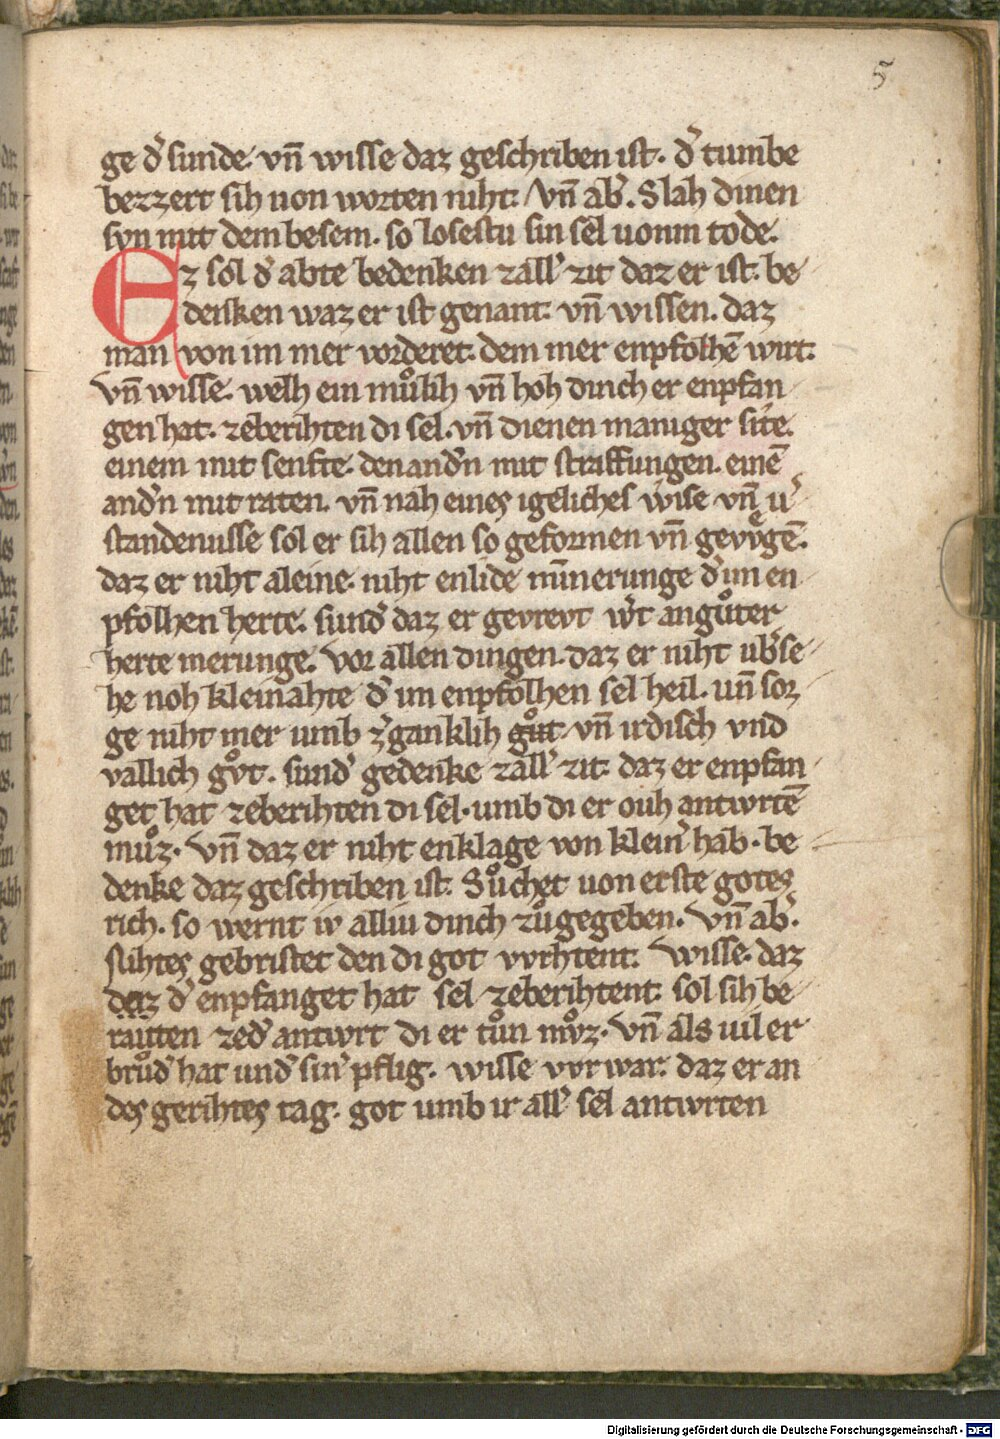 5
ge d̉ sunde. vn̄ wisse daz geschriben ist. d̉ tumbe
bezzert sih uon worten niht. Vn̄ ab̉. Slah dinen
syn mit dem besem. so losestu sin sel uonm tode.
Ez sol d̉ abte bedenken zall̉ zit daz er ist. be
denken waz er ist genant. vn̄ wissen. daz
man von im mer vorderet. dem mer enpfolhē wirt.
Vn̄ wisse. welh ein muͦlih vn̄ hoh dinch er enpfan
gen hat. zeberihten di sel. vn̄ dienen maniger site.
einem mit senfte. den and̉n mit straffungen. einē
and̉n mit raten. vn̄ nah eines igeliches wise vn̄ ủ
standenusse sol er sih allen so geformen vn̄ gevuͤgē.
daz er niht aleine. niht enlide minnerunge d̉ im en
pfolhen herte. sund̉ daz er gevrevt w̉t an guͦter
herte merunge. Vor allen dingen. daz er niht ub̉se
he noh kleinahte d̉ im enpfolhen sel heil. un̄ sor
ge niht mer umb z̉ganklih guͦt. vn̄ irdisch vnd
vallich gvͦt. sund̉ gedenke zall̉ zit. daz er enpfan
get hat zeberihten di sel. umb di er ouh antwrtē
muͦz. Vn̄ daz er niht enklage von klein̉ hab. be
denke daz geschriben ist. Suͦchet uon erste gotes
rich. so wernt iv alliu dinch zuͦgegeben. Vn̄ ab̉.
nihtes gebristet den di got vvrhtent. Wisse. daz
daz d̉ enpfanget hat sel zeberihtent. sol sih be
raitten zed̉ antwrt di er tuͦn mvͦz. Vn̄ als uil er
bruͦd̉ hat und̉ sin̉ pflig. wisse vvr war. daz er an
des gerihtes tag. got umb ir all̉ sel antwrten
Digitalisierung gefördert durch die Deutsche Forschungsgemeinschaft - DFG